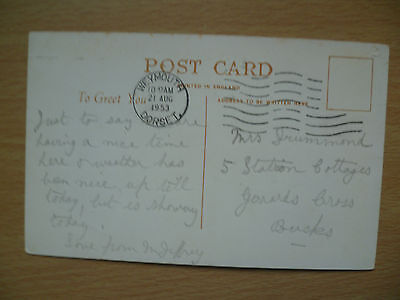 POST CARD
PRINTED IN ENGLAND
To Greet You
ADDRESS TO BE WRITTEN HERE
WEYMOUTH
10 AM
21 AUG
1953
DORSET
Just to say we are
having a nice time
here & weather has
been nice, up till
today, but is showery
today.
Love from
Mrs Drummond
5 Station Cottages
Gerards Cross
Bucks